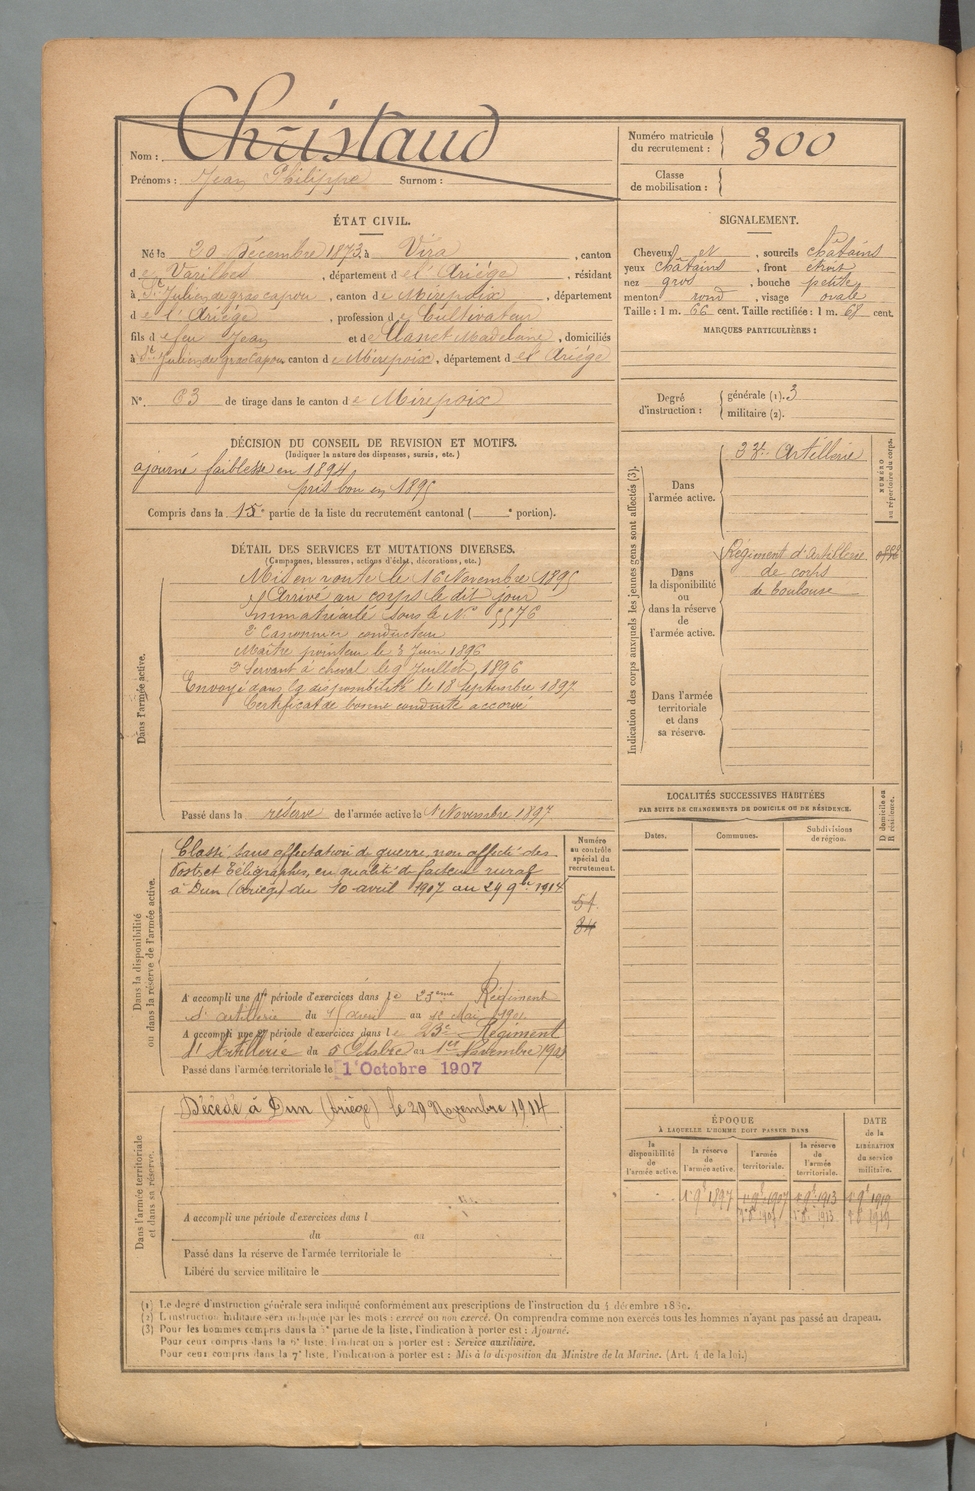 Nom : Christaud
Prénoms : Jean Philippe Surnom :
Numéro matricule du recrutement : 300
Classe de mobilisation :
ÉTAT CIVIL.
Né le 20 Décembre 1873, à Vira, canton
de Varilhes, département de l'Ariège, résidant
à St Julien de gras capou, canton de Mirepoix, département
de l'Ariège, profession de Cultivateur
fils de feu Jean et de Madelaine, domiciliés
à St Julien de gras Capou canton de Mirepoix, département de l'Ariège
N° 63 de tirage dans le canton de Mirepoix
SIGNALEMENT.
Cheveux et, sourcils châtains
yeux châtains, front étroit
nez gros, bouche petite
menton rond, visage ovale
Taille : 1 m. 66 cent. Taille rectifiée : 1 m. 68 cent.
MARQUES PARTICULIÈRES :
Degré d'instruction : générale (1). 3
militaire (2).
DÉCISION DU CONSEIL DE REVISION ET MOTIFS.
(Indiquer la nature des dispenses, sursis, etc.)
ajourné faiblesse en 1894,
pris bon en 1895
Compris dans la partie de la liste du recrutement cantonal ( e portion).
DÉTAIL DES SERVICES ET MUTATIONS DIVERSES.
(Campagnes, blessures, actions d'éclat, décorations, etc.)
Dans l'armée active.
Mis en route le 16 Novembre 1895
Arrivé au corps le dit jour
Immatriculé sous le N° 5576
2e Canonnier conducteur
Maître pointeur le 3 Juin 1896
2e Servant à cheval le 9 Juillet 1896
Envoyé dans la disponibilité le 18 Septembre 1897
Certificat de bonne conduite accordé
Passé dans la réserve de l'armée active le 1 Novembre 1897
Indication des corps auxquels les jeunes gens sont affectés (3).
Dans l'armée active.
Artillerie
NUMÉRO au répertoire du corps.
Dans la disponibilité ou dans la réserve de l'armée active.
Régiment d'Artillerie
de corps
de Toulouse
Dans l'armée territoriale et dans sa réserve.
LOCALITÉS SUCCESSIVES HABITÉES
PAR SUITE DE CHANGEMENTS DE DOMICILE OU DE RÉSIDENCE.
Dates. Communes. Subdivisions de région. D domicile ou R résidence.
Dans la disponibilité ou dans la réserve de l'armée active.
Numéro au contrôle spécial du recrutement.
Classé sans affectation de guerre, non affecté des
Postes et Télégraphes, en qualité de facteur rural
à Dun (Ariège) du 10 avril 1907 au 29 9bre 1914
A accompli une 1re période d'exercices dans le 23eme Régiment
d'artillerie du 15 au 12 Mai 1901.
A accompli une 2e période d'exercices dans le 23e Régiment
d'Artillerie du 5 Octobre au 1er Novembre
Passé dans l'armée territoriale le 1 Octobre 1907
Dans l'armée territoriale et dans sa réserve.
Décédé à Dun (Ariège) le 29 Novembre 1914
A accompli une période d'exercices dans l
du au
Passé dans la réserve de l'armée territoriale le
Libéré du service militaire le
ÉPOQUE
À LAQUELLE L'HOMME DOIT PASSER DANS
la disponibilité de l'armée active. la réserve de l'armée active. l'armée territoriale. la réserve de l'armée territoriale.
DATE de la LIBÉRATION du service militaire.
1 9b 1897 1 9b 1907 1 9b 1913 1 9b 1919
(1) Le degré d'instruction générale sera indiqué conformément aux prescriptions de l'instruction du 4 décembre 1889.
(2) L'instruction militaire sera indiquée par les mots : exercé ou non exercé. On comprendra comme non exercés tous les hommes n'ayant pas passé au drapeau.
(3) Pour les hommes compris dans la 5e partie de la liste, l'indication à porter est : Ajourné.
Pour ceux compris dans la 6e liste, l'indication à porter est : Service auxiliaire.
Pour ceux compris dans la 7e liste, l'indication à porter est : Mis à la disposition du Ministre de la Marine. (Art. 4 de la loi.)